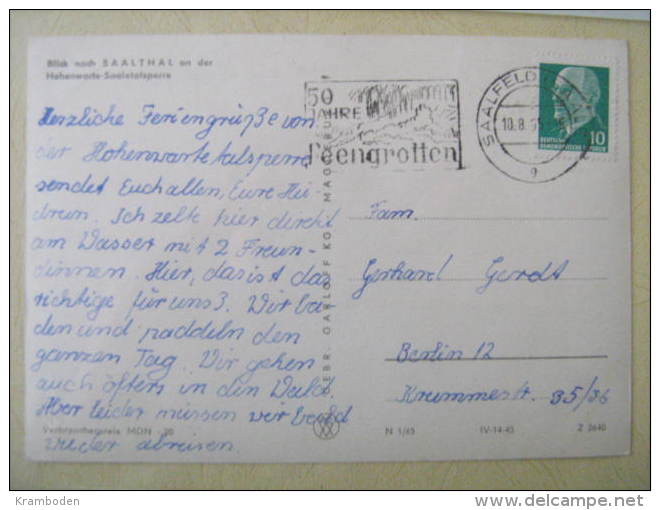 Blick nach SAALTHAL an der
Hohenwarte-Saaletalsperre
Herzliche Feriengrüße von
der Hohenwartetalsperre
sendet Euch allen, Eure Hü-
drun. Ich zelte hier direkt
am Wasser mit 2 Freun-
dinnen. Hier, das ist das
richtige für uns 3. Wir ba-
den und paddeln den
ganzen Tag. Wir gehen
auch öfters in den Wald.
Aber leider müssen wir bald
wieder abreisen
Verbraucherpreis MDN -,20
50
JAHRE
Feengrotten
SAALFELD
10.8.
g
10
DEUTSCHE
DEMOKRATISCHE
GEBR. GARLOFF KG MAGDEBURG
Fam.
Gerhard Gerdt
Berlin 12
Krummestr. 35/36
N 1/65
IV-14-45
Z 2640
Kramboden
delcampe.net